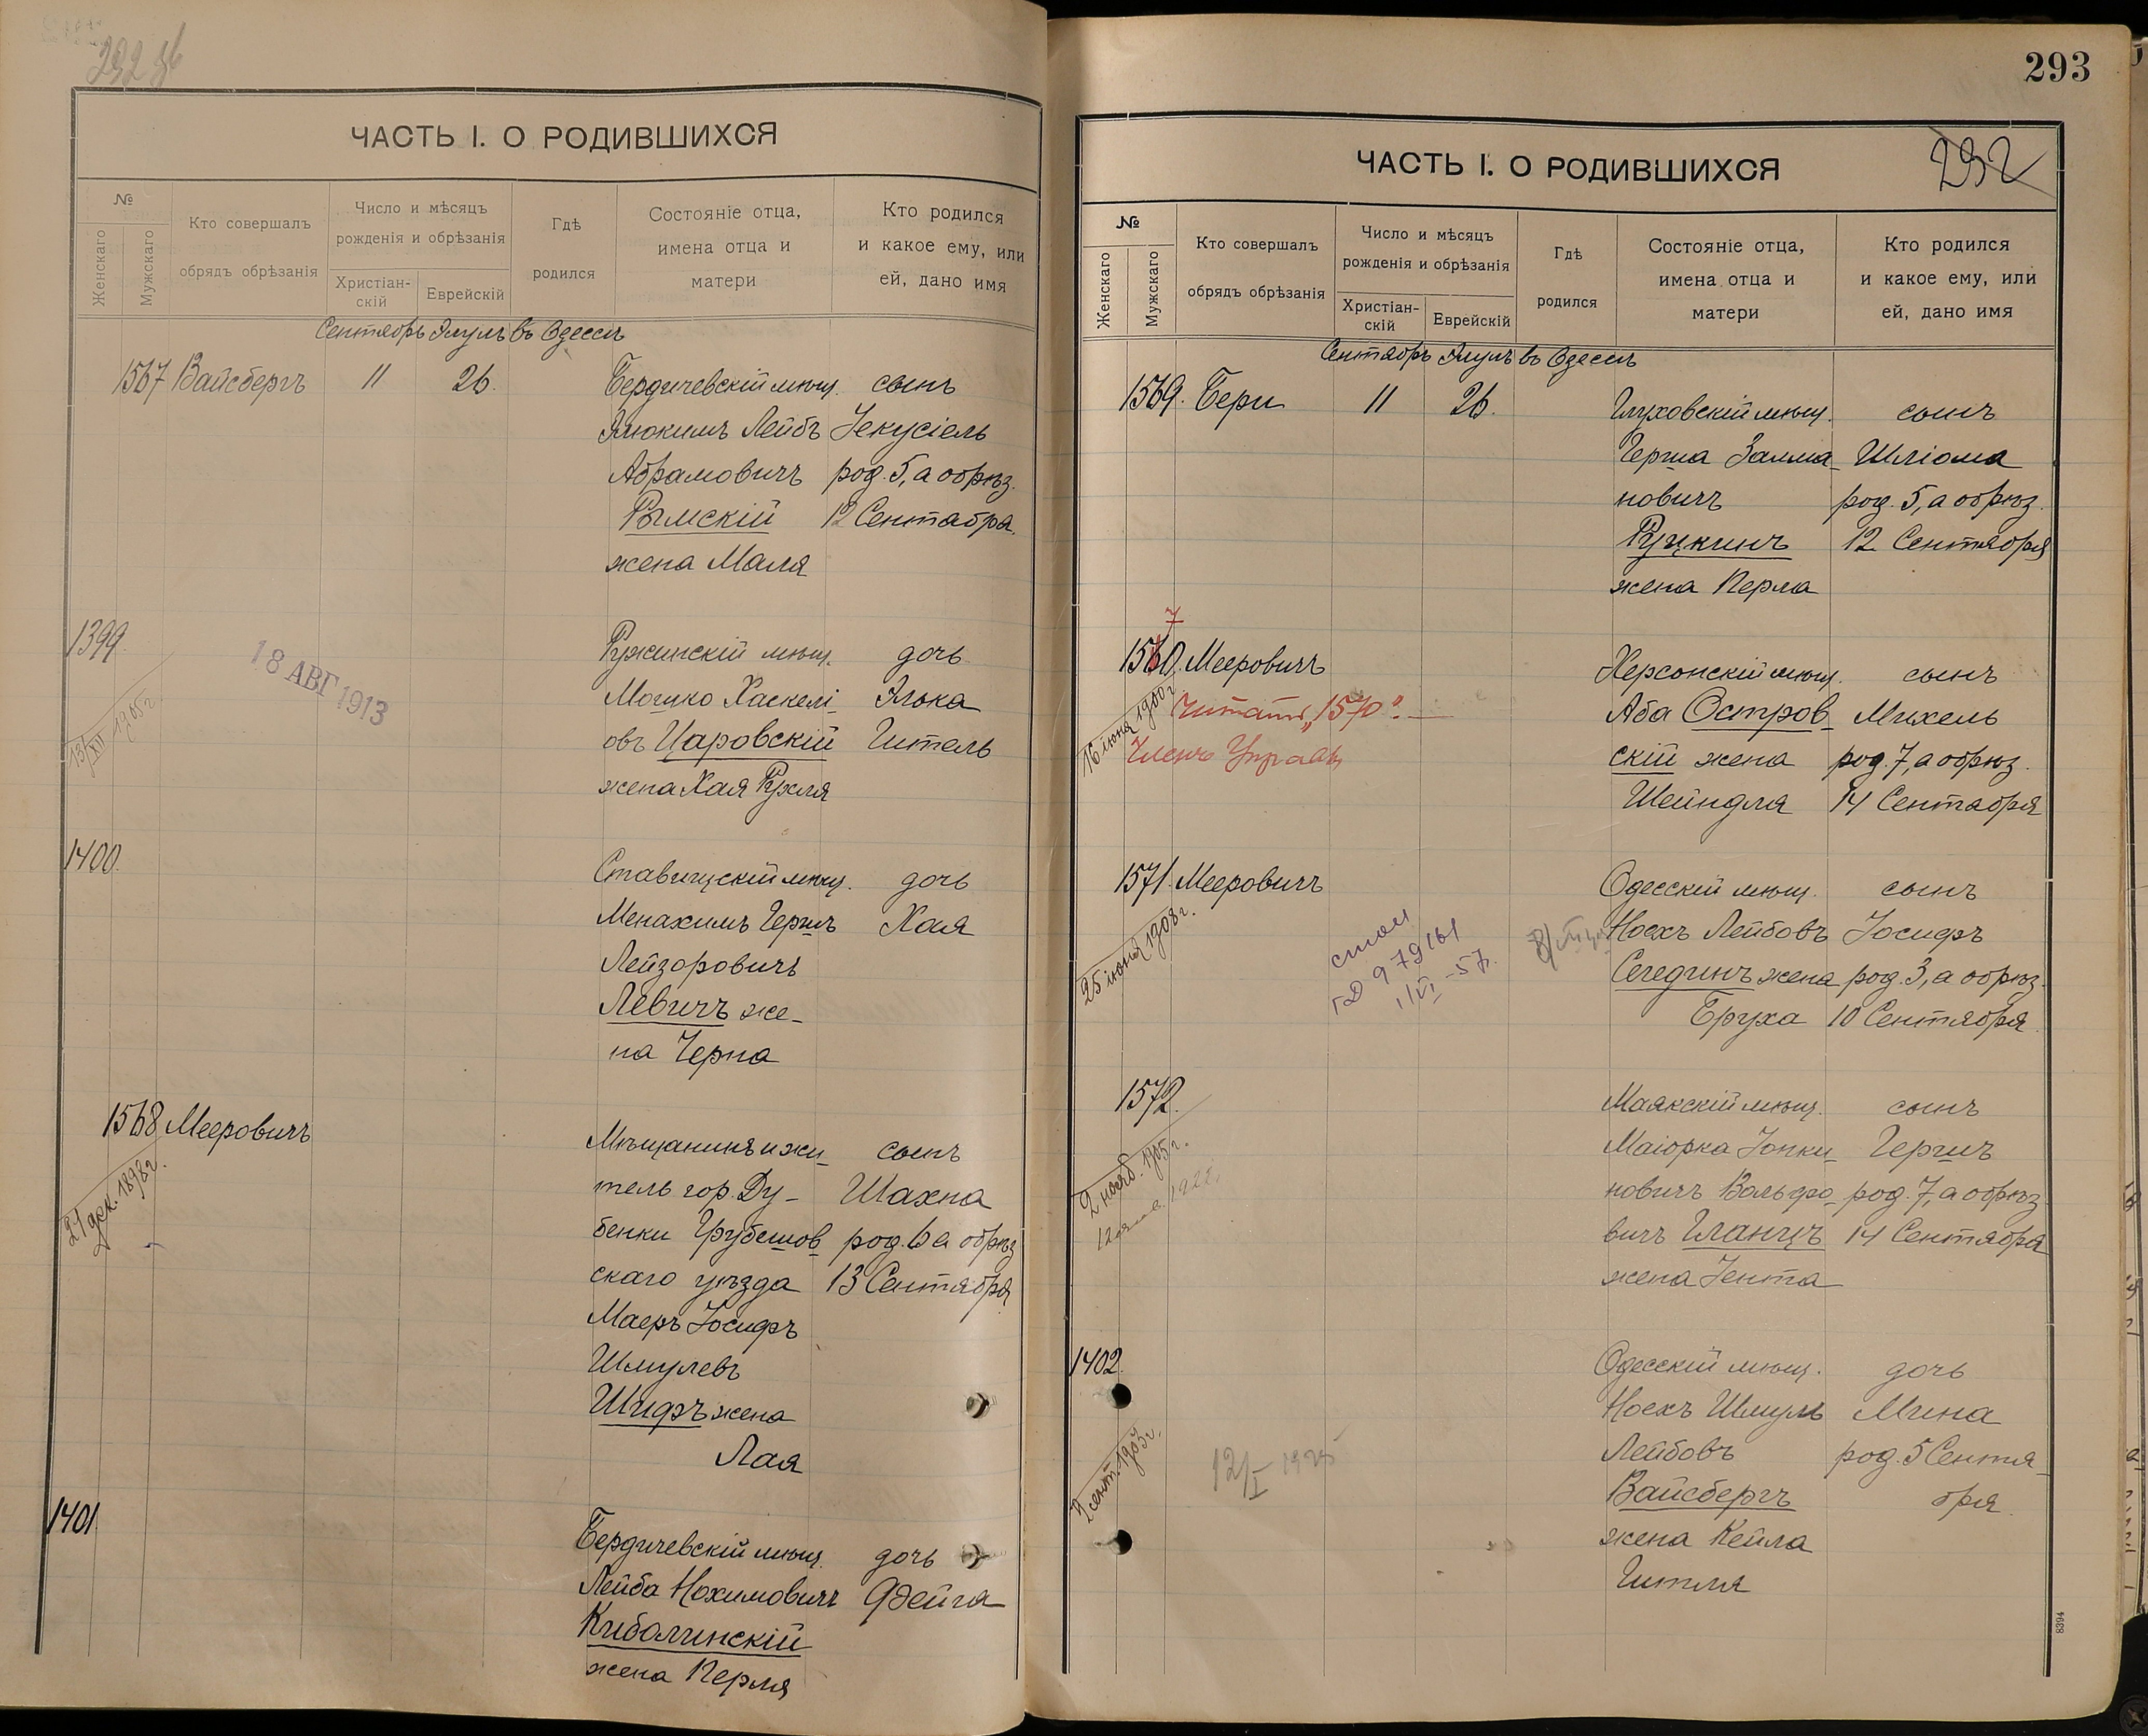 292 зв
ЧАСТЬ I. О РОДИВШИХСЯ
№
Женскаго
Мужскаго
Кто совершалъ
обрядъ обрѣзанія
Число и мѣсяцъ
рожденія и обрѣзанія
Христіан-
скій
Еврейскій
Гдѣ
родился
Состояніе отца,
имена отца и
матери
Кто родился
и какое ему, или
ей, дано имя
Сентябрь Элулъ въ Одессѣ
1567 Вайсбергъ 11 26. Бердичевскій мѣщ. сынъ
Элюкимъ Лейбъ Іекусіель
Абрамовичъ род. 5, а обрѣз.
Рымскій 12 Сентября
жена Маля
1399. Ружинскій мѣщ. дочь
18 АВГ 1913
13/XII 1905 г.
Мошко Хаскелі- Элька
овъ Царовскій Гитель
жена Хая Рухля
1400. Ставищскій мѣщ. дочь
Менахимъ Гершъ Хая
Лейзоровичъ
Левичъ же-
на Черна
1568 Мееровичъ Мѣщанинъ и жи- сынъ
21 дек. 1898 г.
тель гор. Ду- Шахна
бенки Грубешов- род. 6 а обрѣз
скаго уѣзда 13 Сентября
Маеръ Іосифъ
Шмулевъ
Шифъ жена
Лая
1401 Бердичевскій мѣщ. дочь
Лейба Нохимовичъ Фейга
Киболинскій
жена Перля
293
292
ЧАСТЬ I. О РОДИВШИХСЯ
№
Женскаго
Мужскаго
Кто совершалъ
обрядъ обрѣзанія
Число и мѣсяцъ
рожденія и обрѣзанія
Христіан-
скій
Еврейскій
Гдѣ
родился
Состояніе отца,
имена отца и
матери
Кто родился
и какое ему, или
ей, дано имя
Сентябрь Элулъ въ Одессѣ
1569. Бери 11 26. Глуховскій мѣщ. сынъ
Герша Залма- Шліома
новичъ род. 5, а обрѣз.
Руцкинъ 12 Сентября
жена Перла
7
1560. Мееровичъ Херсонскій мѣщ. сынъ
16 іюня 1900 г.
Читать „1570“.
Членъ Управы
Аба Остров- Михель
скій жена род. 7, а обрѣз.
Шейндля 14 Сентября
1571. Мееровичъ Одесскій мѣщ. сынъ
25 іюня 1908 г.
979161
1/VI-57.
Ноехъ Лейбовъ Іосифъ
Сегединъ жена род. 3, а обрѣз.
Еруха 10 Сентября
1572. Маякскій мѣщ. сынъ
2 нояб. 1905 г.
Маіорка Іопки- Гершъ
новичъ Вольфо- род. 7, а обрѣз.
вичъ Гланцъ 14 Сентября
жена Іента
1402. Одесскій мѣщ. дочь
2 сент. 1903 г.
12/I 1925
Ноехъ Шмуль Мина
Лейбовъ род. 5 Сентя-
Вайсбергъ бря
жена Кейла
Гитля
8394